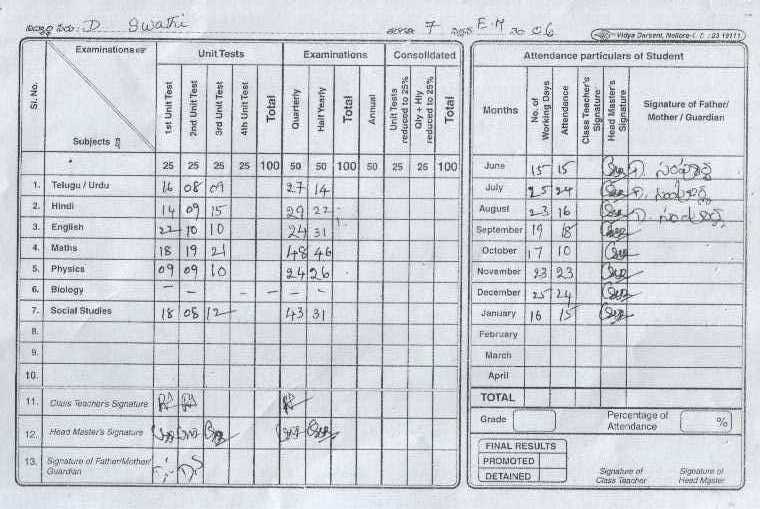 విద్యార్థి పేరు: D. Swathi తరగతి 7 సెక్షన్ E.M నెం 06 Vidya Darsani, Nellore-I.
Examinations Unit Tests Examinations Consolidated
Sl. No. Subjects 1st Unit Test 2nd Unit Test 3rd Unit Test 4th Unit Test Total Quarterly Half Yearly Total Annual Unit Tests reduced to 25% Qly + Hly reduced to 25% Total
25 25 25 25 100 50 50 100 50 25 25 100
1. Telugu / Urdu 16 08 09 27 14
2. Hindi 14 09 15 29 22
3. English 22 10 10 24 31
4. Maths 18 19 21 48 46
5. Physics 09 09 10 24 26
6. Biology - - - - -
7. Social Studies 18 08 12 43 31
8.
9.
10.
11. Class Teacher's Signature
12. Head Master's Signature
13. Signature of Father/Mother/
Guardian
Attendance particulars of Student
Months No. of Working Days Attendance Class Teacher's Signature Head Master's Signature Signature of Father/ Mother / Guardian
June 15 15
July 25 24
August 23 16
September 19 18
October 17 10
November 23 23
December 25 24
January 16 15
February
March
April
TOTAL
Grade Percentage of Attendance %
FINAL RESULTS
PROMOTED
DETAINED
Signature of Class Teacher Signature of Head Master